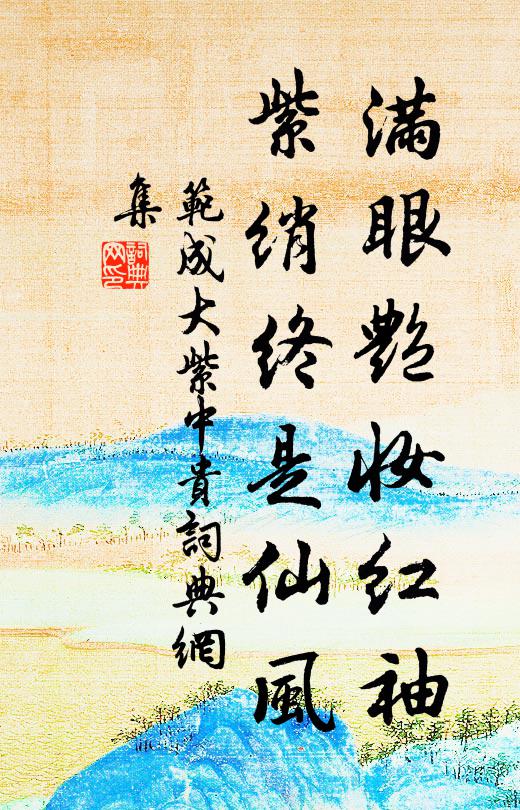 滿眼艷妝紅袖
紫綃終是仙風
範成大紫中貴詞典網
集
詞典
网印